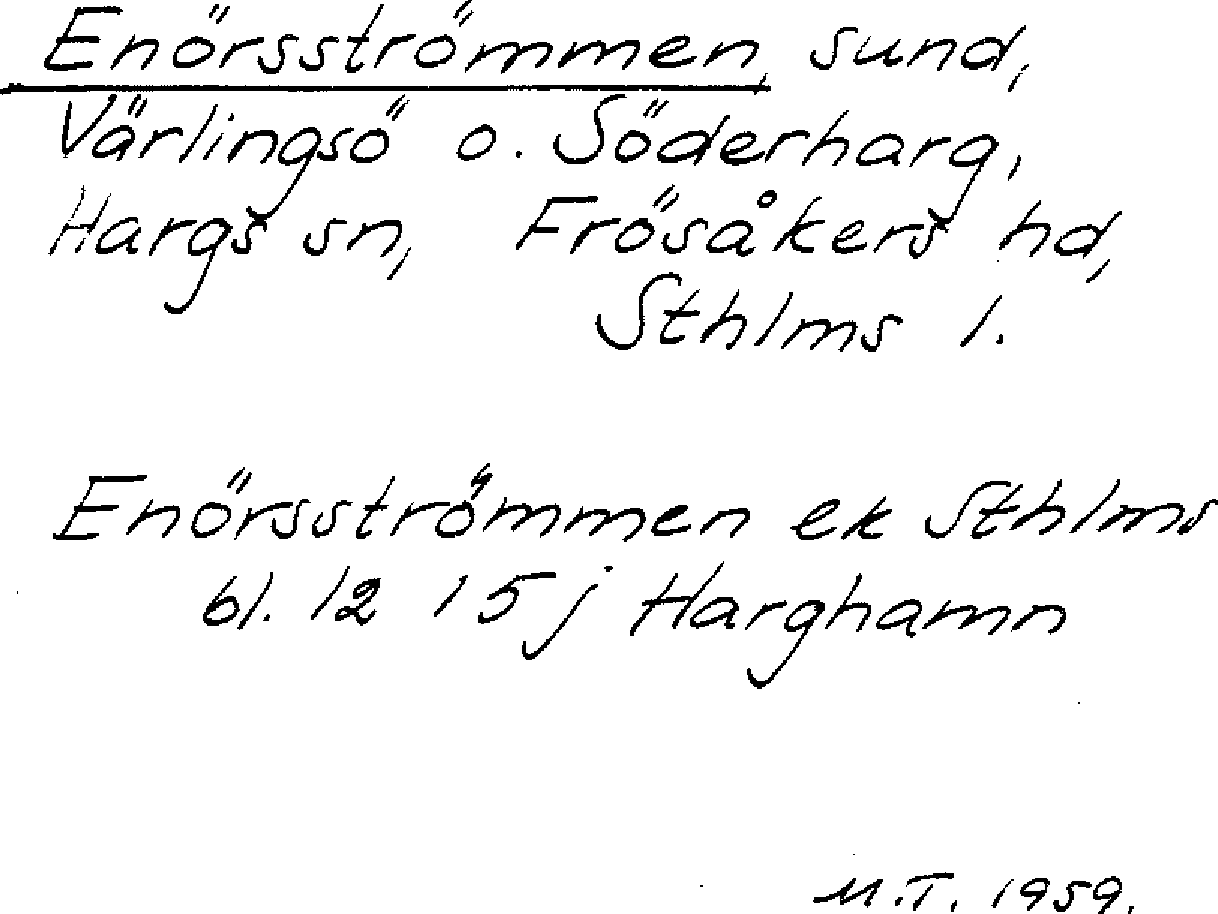 Enörsströmmen, sund,
Värlingsö o. Söderharg,
Hargs sn, Frösåkers hd,
Sthlms l.
Enörsströmmen ek Sthlms
bl. 12 15j Harghamn
M.T. 1959.